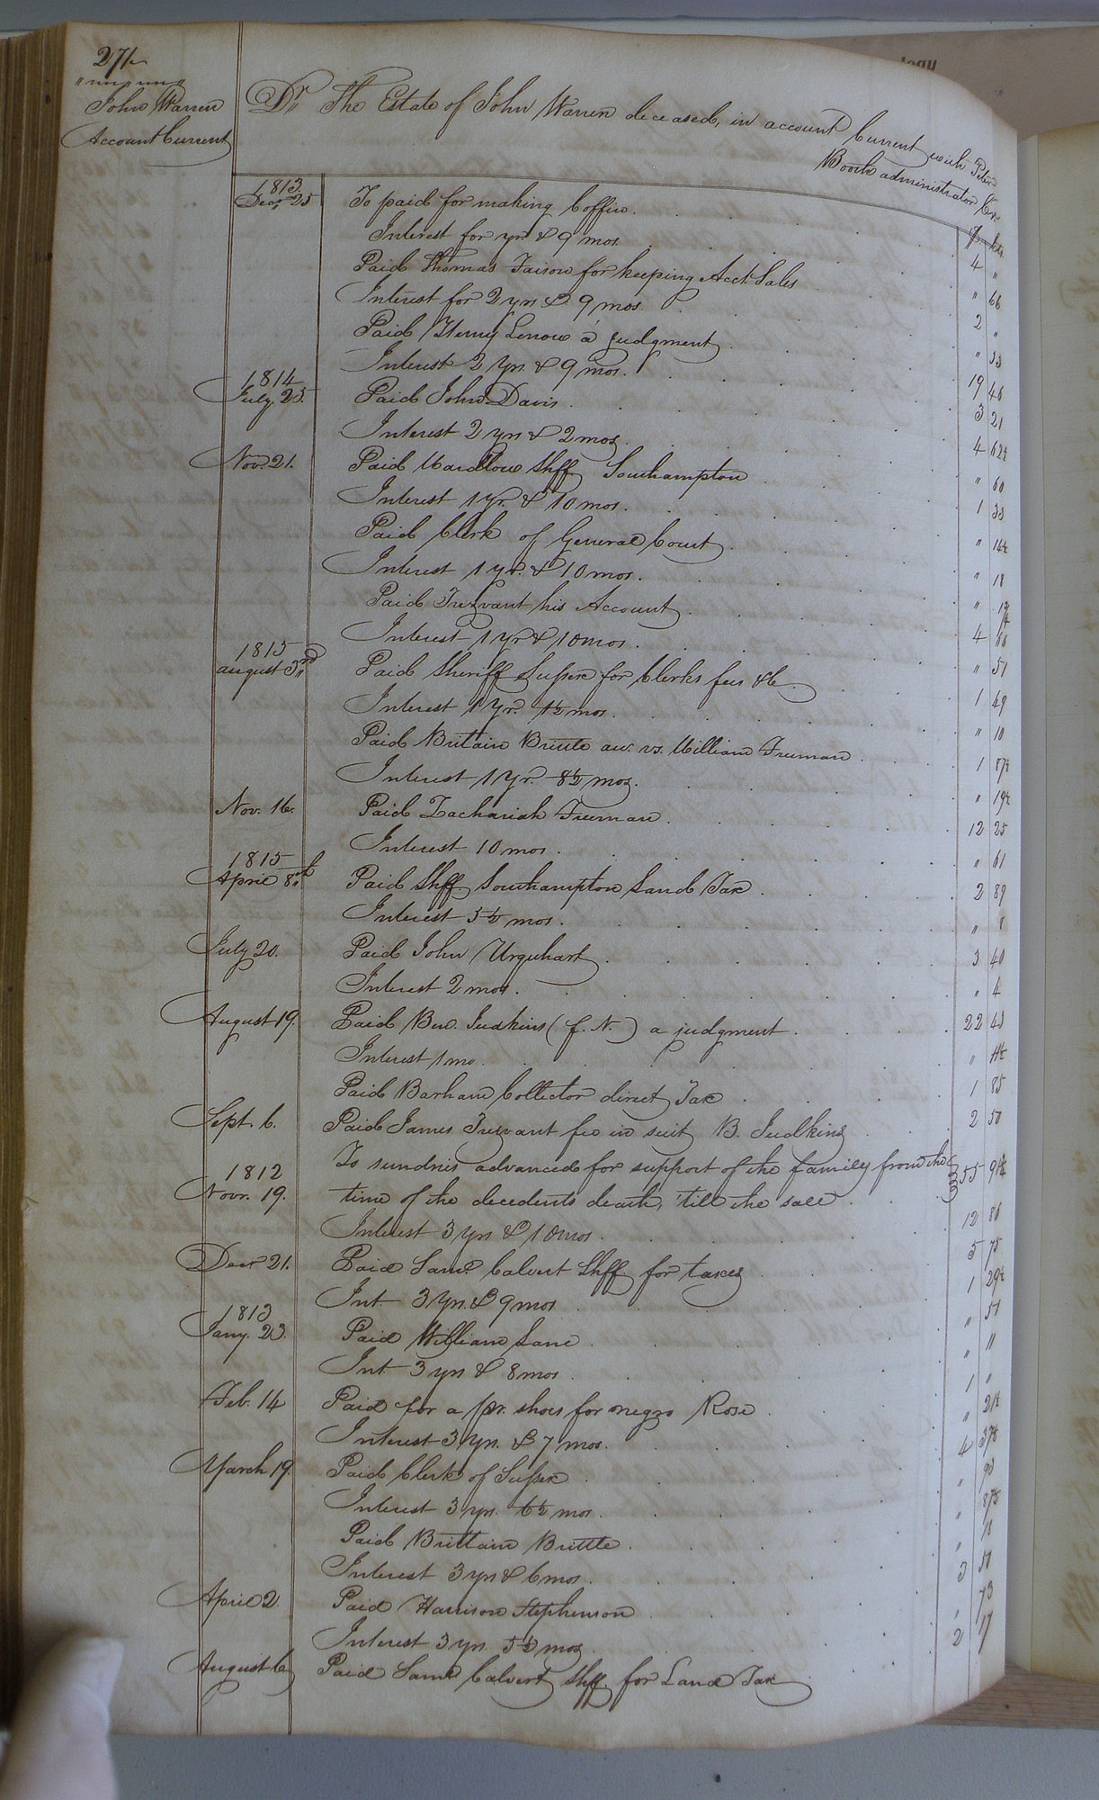 274
John Warren
Account Current
Dr. The Estate of John Warren deceased, in account Current with Peter
Booth administrator &c
1813
Decr 25 To paid for making Coffin. 4 "
Interest for yrs & 9 mos. " 66
Paid Thomas Faison for keeping Acct Sales 2 "
Interest for 2 yrs & 9 mos. " 33
Paid Henry Lenow a judgment 19 46
Interest 2 yrs & 9 mos. 3 21
1814
July 25. Paid John Davis. 4 62½
Interest 2 yrs & 2 mos " 60
Nov. 21. Paid Wardlow Shff Southampton 1 33
Interest 1 yr. & 10 mos. " 14½
Paid Clerk of General Court. " 18
Interest 1 yr. & 10 mos. "
Paid Trezvant his Account 4
Interest 1 yr & 10 mos. " 51
1815
august 3rd Paid Sheriff Sussex for Clerks fees &c. 1 49
Interest 1 yr. 1½ mos. " 10
Paid Britain Brittle aw. vs. William Freeman 1 87½
Interest 1 Yr. 8½ mos. " 19½
Nov. 16. Paid Zachariah Freeman 12 25
Interest 10 mos. " 61
1815
April 8th Paid Shff Southampton Land Tax 2 89
Interest 5½ mos. " 8
July 20. Paid John Urquhart 3 40
Interest 2 mos. " 4
August 19. Paid Bw. Judkins (f. N.) a judgment. 22 43
Interest 1 mo "
Paid Barham Collector direct Tax 1 85
Sept. 6. Paid James Trezvant fee in suit B. Judkins 2 50
To sundries advanced for support of the family from the
1812
Novr. 19. time of the decedents death, till the sale 55
Interest 3 yrs & 10 mos. 12 86
Decr 21. Paid Saml. Calvert Shff for taxes 5 75
Int 3 Yrs. & 9 mos 1 29½
1813
Jany. 23. Paid William Lane " 51
Int 3 yrs & 8 mos. " 11
Feb. 14 Paid for a pr. shoes for negro Rose 1 "
Interest 3 yrs. & 7 mos. " 21½
March 19. Paid Clerk of Sussex 4 37½
Interest 3 yrs. 6½ mos. " 93
Paid Brittain Brittle " 87½
Interest 3 yrs & 6 mos. " 18
April 2 Paid Harrison Stephenson 3 51
Interest 3 yrs. 5½ mos " 73
August 6 Paid Saml Calvert Shff. for Land Tax 2 17